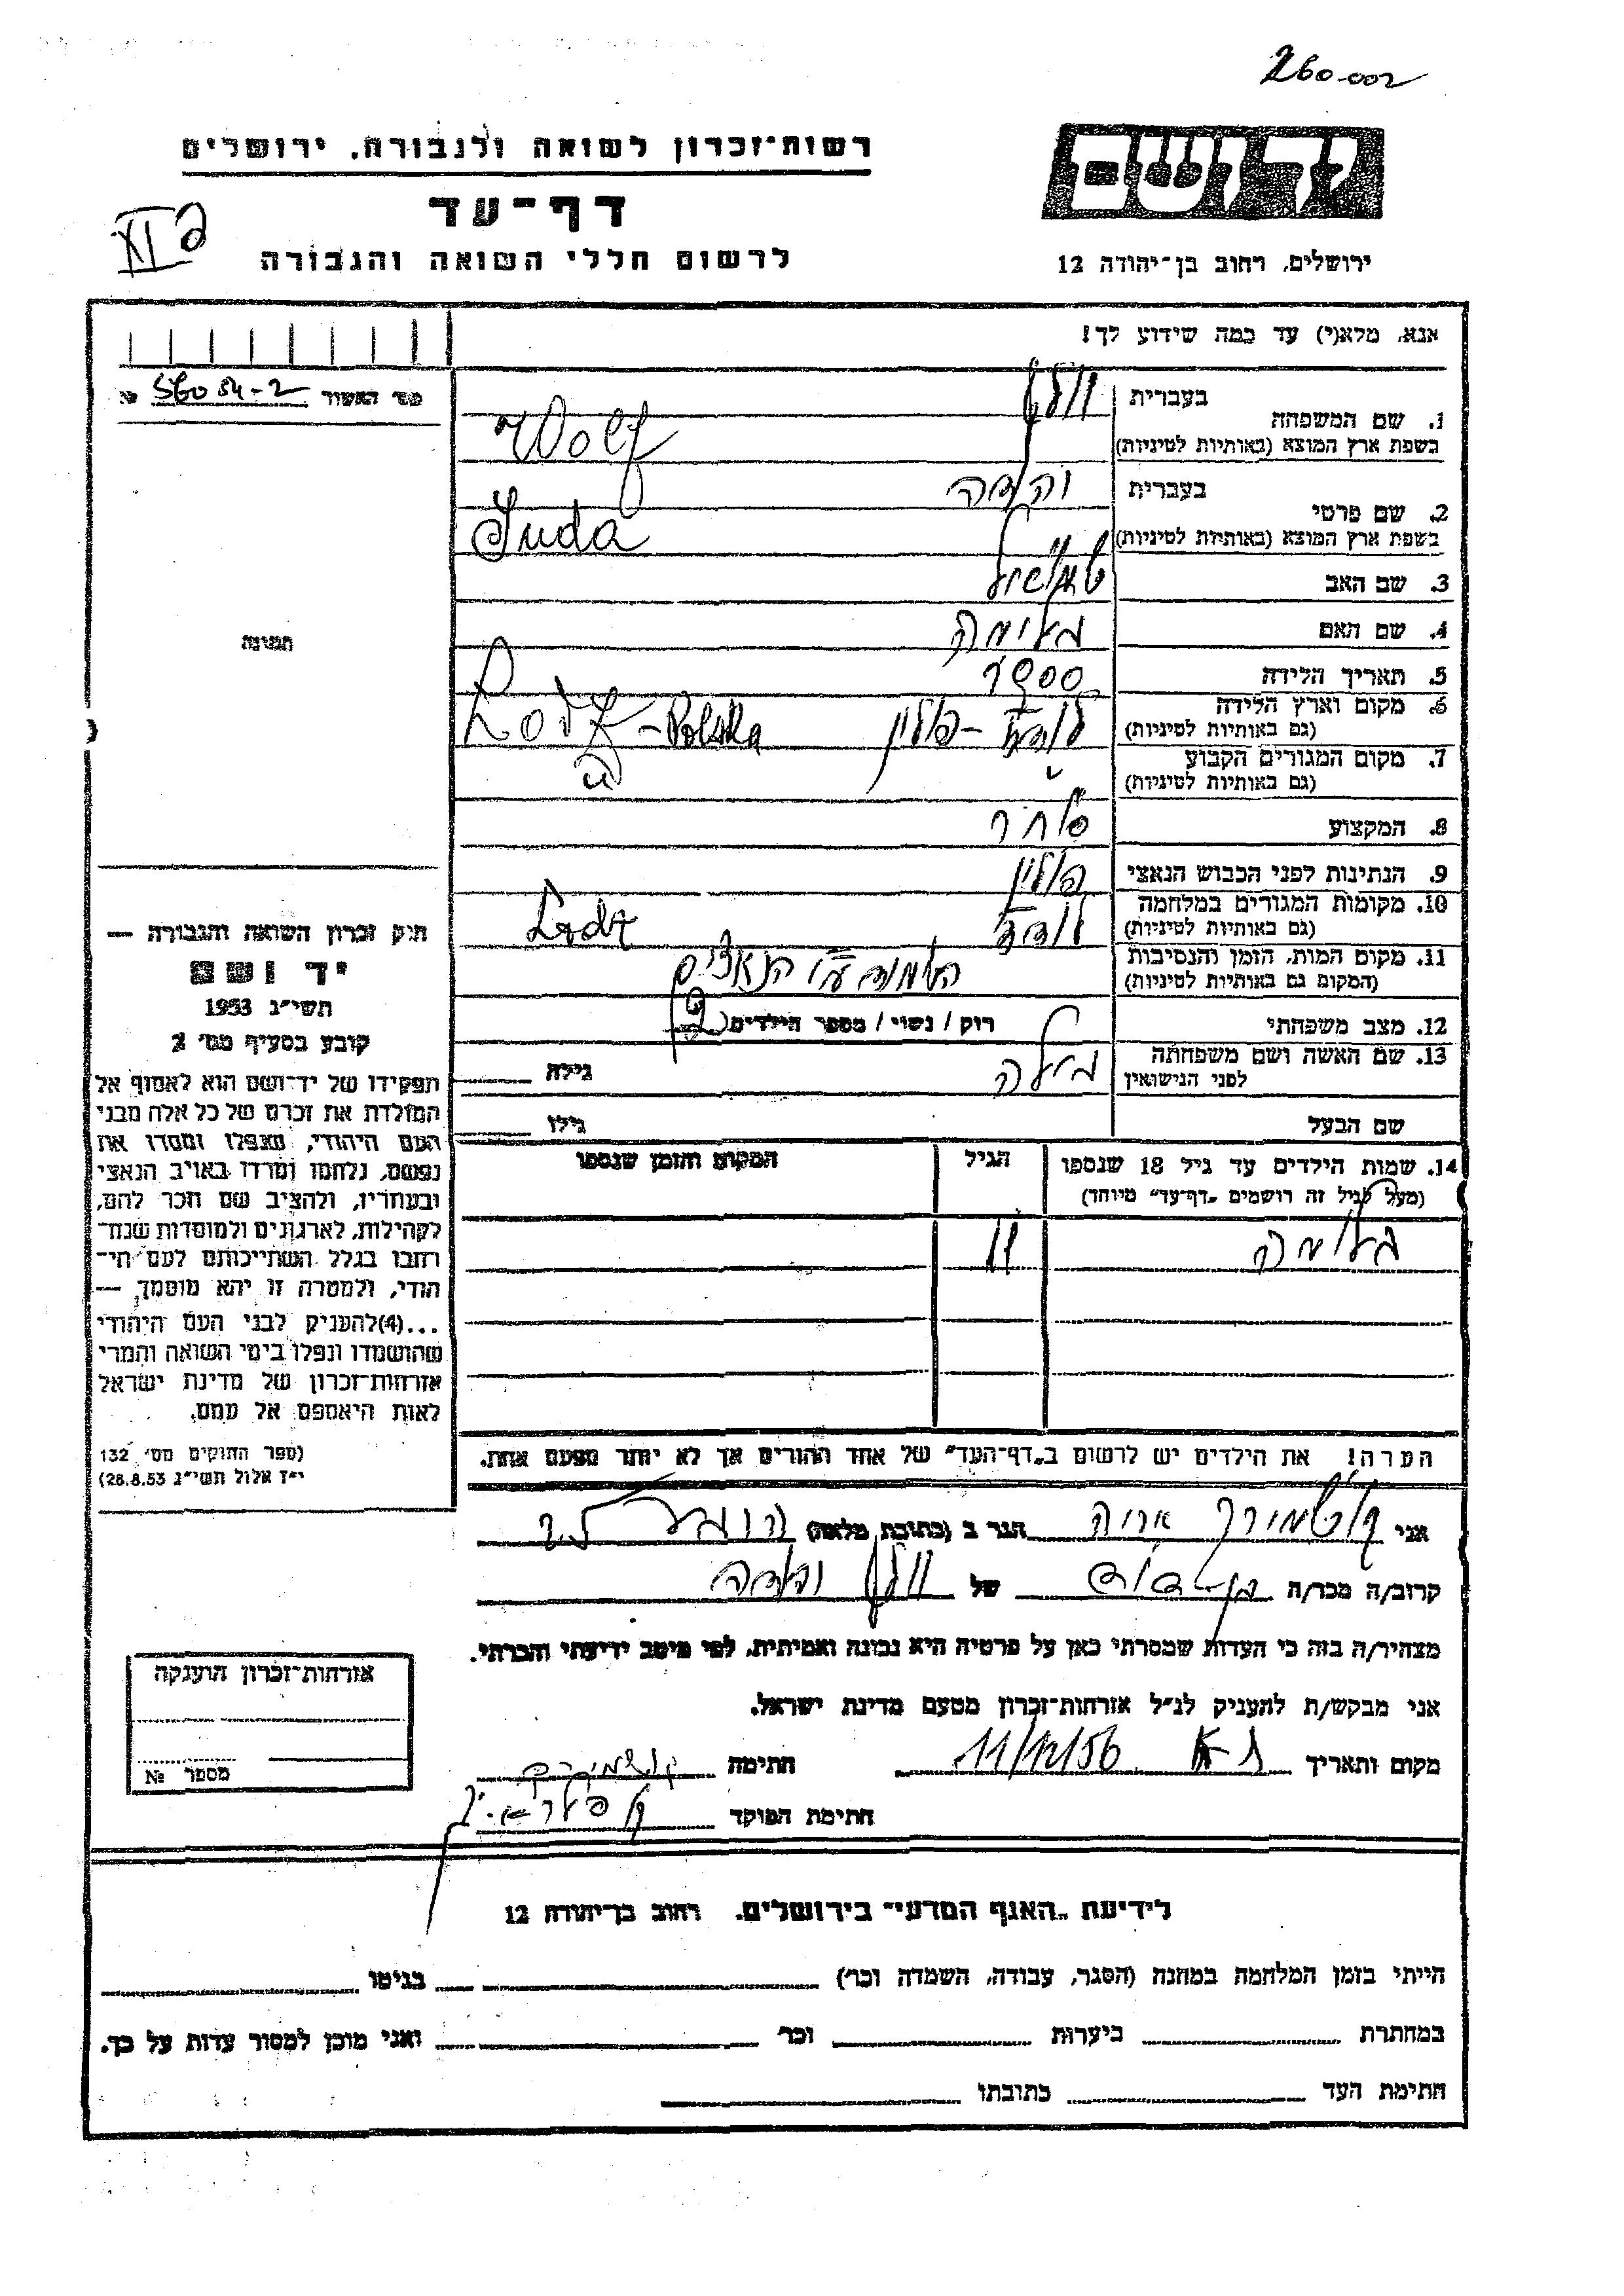 260-002
רשות־זכרון לשואה ולגבורה, ירושלים
דף־עד
לרשום חללי השואה והגבורה
ידושם
ירושלים, רחוב בן־יהודה 12
אנא, מלא(י) עד כמה שידוע לך!
1. שם המשפחה
בעברית וולף
בשפת ארץ המוצא (באותיות לטיניות) Wolf
2. שם פרטי
בעברית יהודה
בשפת ארץ המוצא (באותיות לטיניות) Juda
3. שם האב
4. שם האם
5. תאריך הלידה 1900
6. מקום וארץ הלידה לודז' - פולין Lodz - Polska
(גם באותיות לטיניות)
7. מקום המגורים הקבוע
(גם באותיות לטיניות)
8. המקצוע סוחר
9. הנתינות לפני הכבוש הנאצי פולין
10. מקומות המגורים במלחמה לודז' Lodz
(גם באותיות לטיניות)
11. מקום המות, הזמן והנסיבות הושמד ע"י הנאצים
(המקום גם באותיות לטיניות)
12. מצב משפחתי רוק / נשוי / מספר הילדים
13. שם האשה ושם משפחתה גילה
לפני הנישואין
שם הבעל גילו
14. שמות הילדים עד גיל 18 שנספו הגיל המקום והזמן שנספו
(מעל לגיל זה רושמים „דף־עד״ מיוחד)
11
הערה! את הילדים יש לרשום ב„דף־העד״ של אחד ההורים אך לא יותר מפעם אחת.
אני אריה הגר ב (כתובת מלאה)
קרוב/ה מכר/ה בן-דוד של וולף יהודה
מצהיר/ה בזה כי העדות שמסרתי כאן על פרטיה היא נכונה ואמיתית, לפי מיטב ידיעתי והכרתי.
אני מבקש/ת להעניק לנ״ל אזרחות־זכרון מטעם מדינת ישראל.
מקום ותאריך 11/12/56 חתימה
חתימת הפוקד
מס׳ האשור 56054-2 №
תמונה
חוק זכרון השואה והגבורה —
יד ושם
תשי״ג 1953
קובע בסעיף מס׳ 2
תפקידו של יד־ושם הוא לאסוף אל
המולדת את זכרם של כל אלה מבני
העם היהודי, שנפלו ומסרו את
נפשם, נלחמו ומרדו באויב הנאצי
ובעוזריו, ולהציב שם וזכר להם,
לקהילות, לארגונים ולמוסדות שנח־
רחבו בגלל השתייכותם לעם הי־
הודי, ולמטרה זו יהא מוסמך, —
...(4)להעניק לבני העם היהודי
שהושמדו ונפלו בימי השואה והמרי
אזרחות־זכרון של מדינת ישראל
לאות היאספם אל עמם.
(ספר החוקים מס׳ 132
י״ז אלול תשי״ג 28.8.53)
אזרחות־זכרון הוענקה
מספר №
לידיעת „האגף המדעי״ בירושלים. רחוב בן־יהודה 12
הייתי בזמן המלחמה במחנה (הסגר, עבודה, השמדה וכו׳) בגיטו
במחתרת ביערות וכו׳ ואני מוכן למסור עדות על כך.
חתימת העד כתובתו